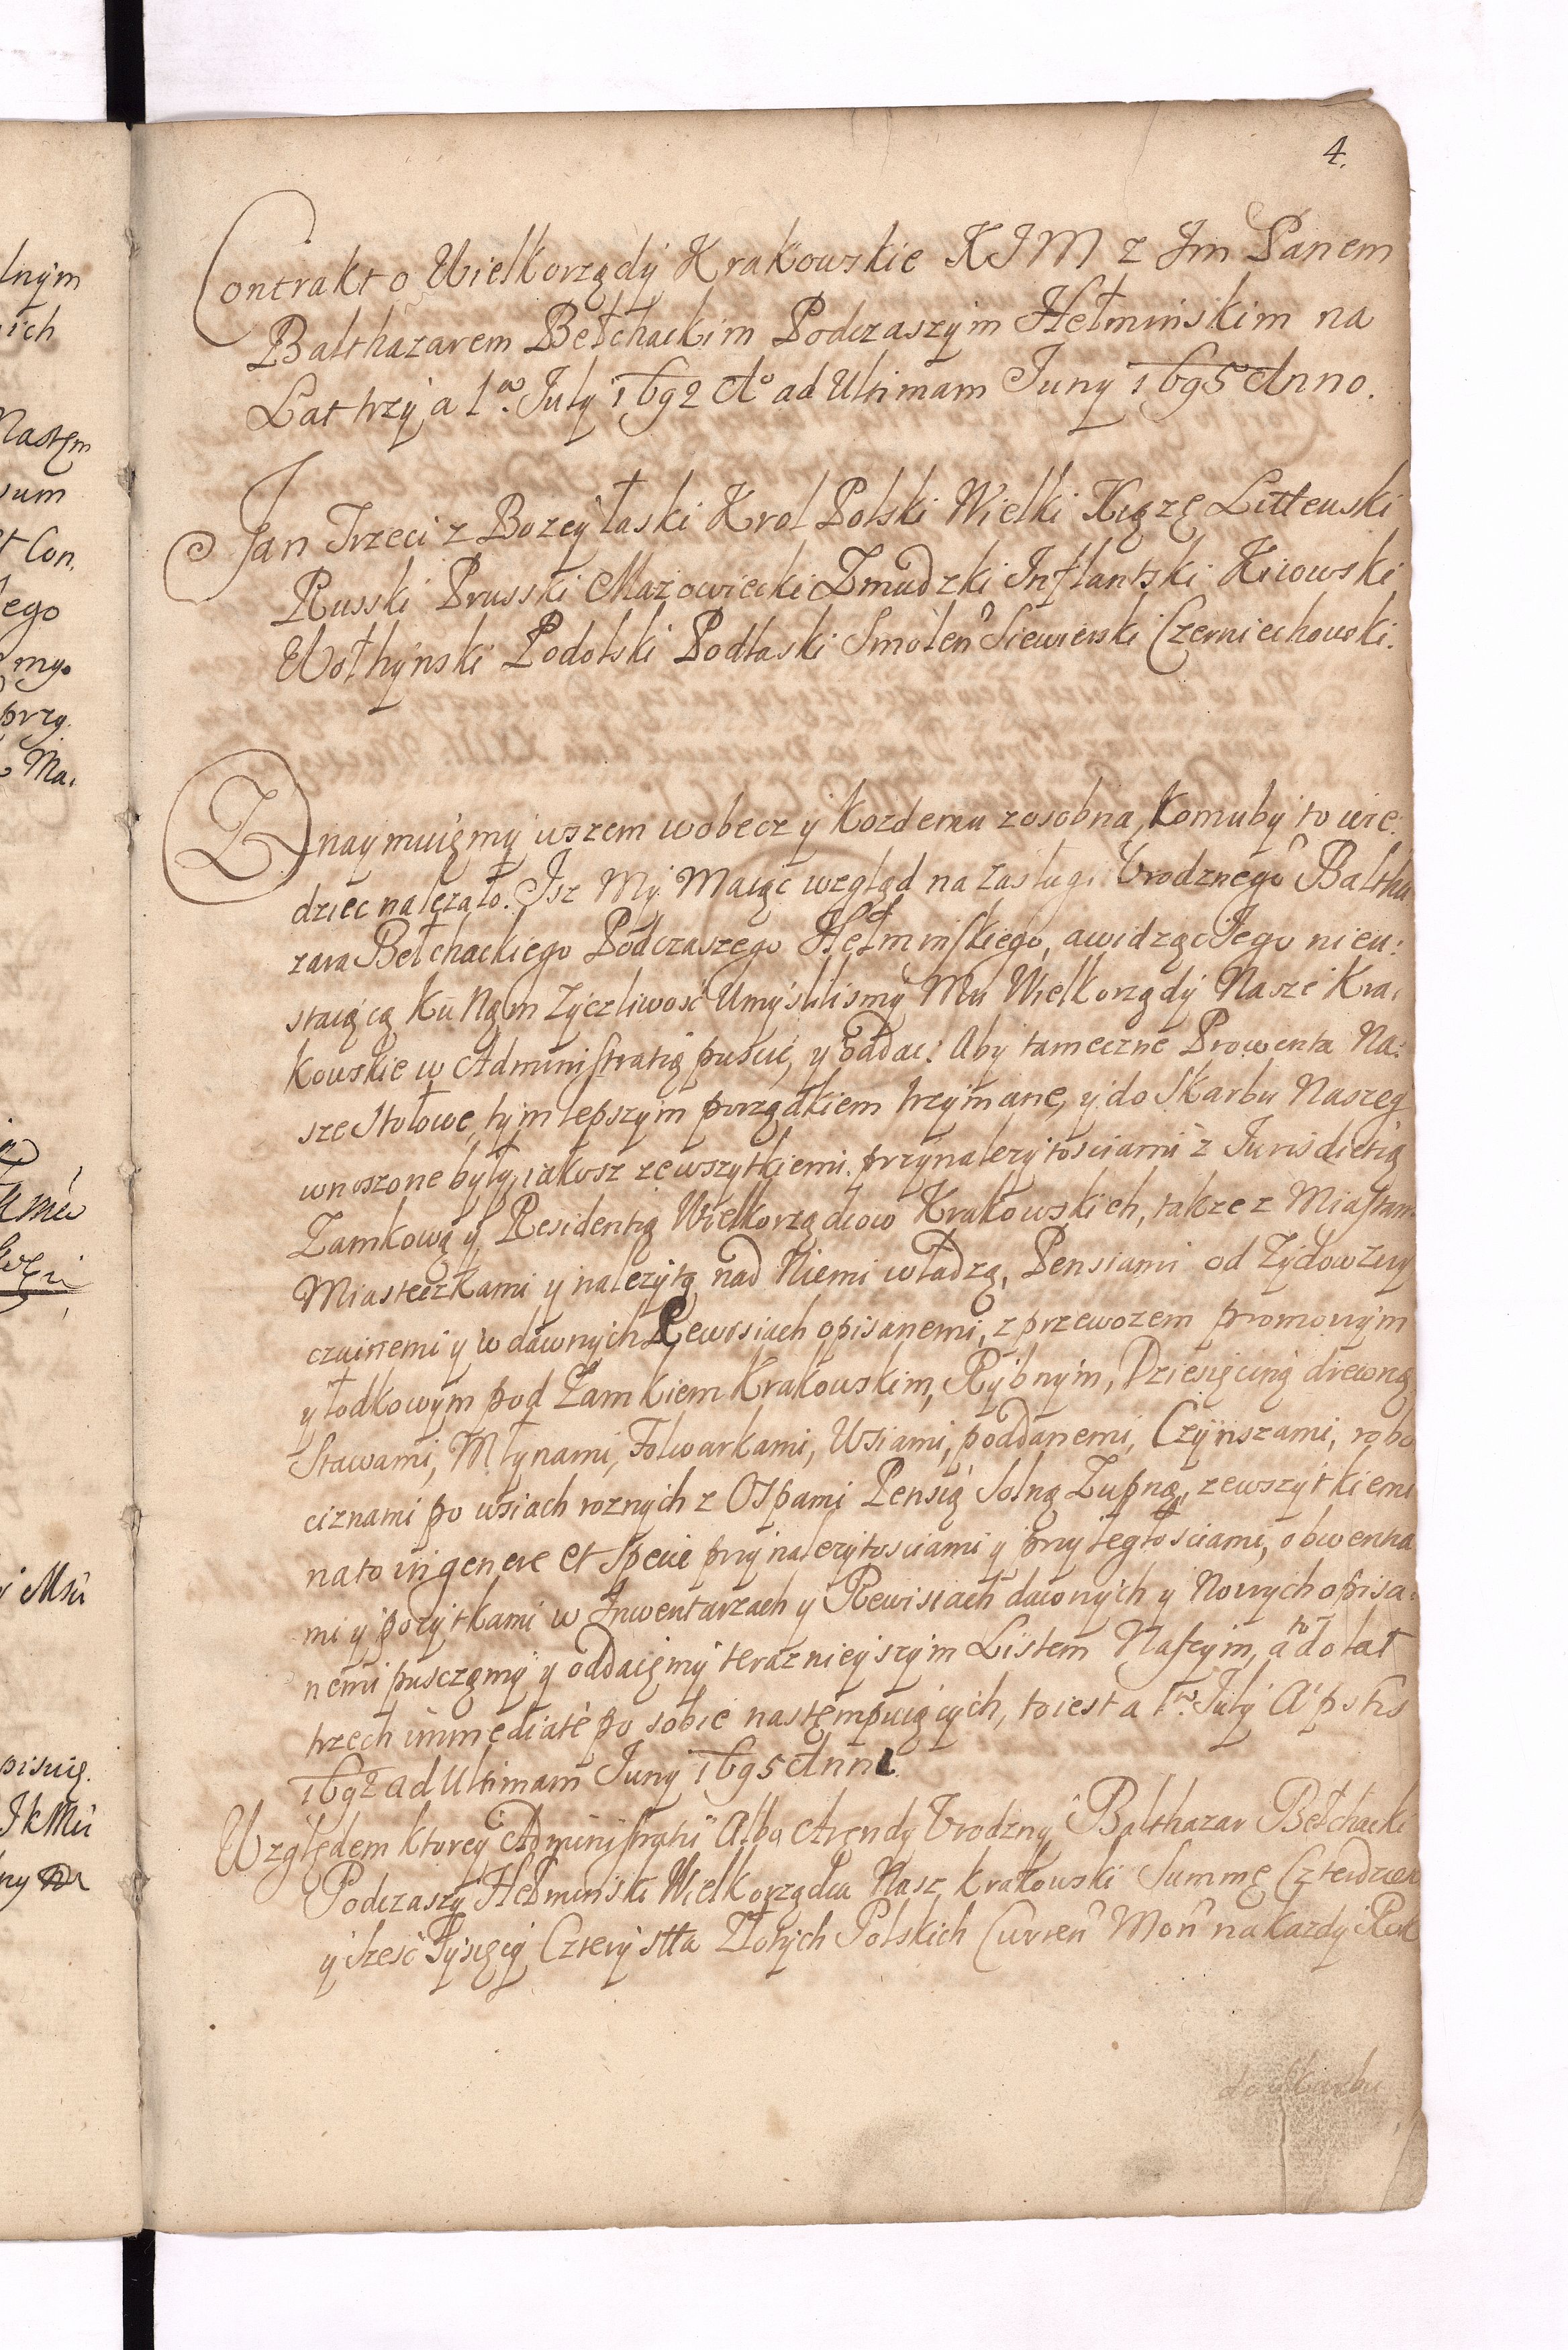 4.
Contrakt o Wielkorządy Krakowskie KJM z Jm Panem
Balthazarem Bełchackim Podczaszym Hełminskim na
Lat trzy a 1ma July 1692 Ao ad Ultimam Juny 1695 Anno.
Jan Trzeci z Bozey łaski Krol Polski Wielki Xiązę Littewski
Russki Prusski Mazowiecki Zmudzki Inflantski Kiiowski
Wołhynski Podolski Podlaski Smolen Siewierski Czerniechowski.
Znaymuięmy wszem wobecz y kozdemu zosobna, komuby to wie:
dziec nalezało. Jsz My Maiąc wzgląd na zasługi Urodznego Baltha
zara Bełchackiego Podczaszego Hełminskiego, a widząc Jego nieu:
staiącą ku Nąm zyczliwosc Umyslilismy Mu Wielkorządy Nasze Kra:
kowskie w Administratią puscic, y oddac: Aby tameczne Prowenta Na:
sze Stołowe, tym lepszym porządkiem trzymane, y do Skarbu Naszeg
wnoszone były, iakosz zewszytkiemi przynalezytosciami z Jurisdictią
Zamkową y Residentią Wielkorządców Krakowskich, takze z Miastam
Miasteczkami y nalezytą nad Niemi władzą, Pensiami od Zydow Zwy
czainemi y w dawnych Rewisiach opisanemi, z przewozem promowym
y łodkowym pod Zamkiem Krakowskim, Rybnym, Dziesięciną drewną
Stawami, Młynami, Folwarkami, Wsiami, poddanemi, Czynszami, robo
ciznami po wsiach roznych z Ospami Pensią Solną Zupną, zewszytkiemi
na to in genere et Specie przynalezytosciami y przyległosciami, obwentia
mi y pozytkami w Inwentarzach y Rewisiach dawnych y Nowych opisa:
nemi pusczęmy y oddaięmy terazniejszym Listem Naszym, a to do lat
trzech immediate po sobie nastęmpuiących, to iest a 1ma July A pstis
1692 ad Ultimam Juny 1695 Anni
Względem ktorey Administratii Albo Arendy Urodzny Balthazar Bełchacki
Podczaszy Hełminski Wielkorządca Nasz krakowski Summę Czterdzies
y szesc Tysięcy Czterysta Złotych Polskich Curren Mon na kazdy Rok
do Skarbu